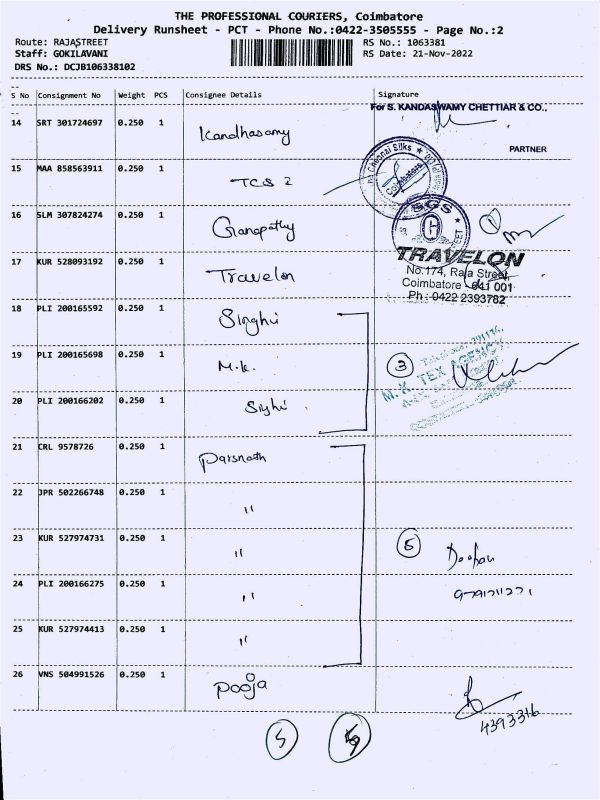 THE PROFESSIONAL COURIERS, Coimbatore
Delivery Runsheet - PCT - Phone No.:0422-3505555 - Page No.:2
Route: RAJASTREET RS No.: 1063381
Staff: GOKILAVANI RS Date: 21-Nov-2022
DRS No.: DCJB106338102
--
S No Consignment No Weight PCS Consignee Details Signature
--
For S. KANDASWAMY CHETTIAR & CO.,
14 SRT 301724697 0.250 1 Kandhasamy
PARTNER
15 MAA 858563911 0.250 1 TCS 2
Chennai Silks
Coimbatore
16 SLM 307824274 0.250 1 Ganapathy
SGS
17 KUR 528093192 0.250 1 Travelon
TRAVELON
No.174, Raja Street,
Coimbatore - 641 001
Ph : 0422 2393782
18 PLI 200165592 0.250 1 Singhvi
19 PLI 200165698 0.250 1 M.K. 3
M. K. TEX AGENCY
20 PLI 200166202 0.250 1
21 CRL 9578726 0.250 1 Parsnath
22 JPR 502266748 0.250 1 "
23 KUR 527974731 0.250 1 " 5
24 PLI 200166275 0.250 1 "
25 KUR 527974413 0.250 1 "
26 VNS 504991526 0.250 1 Pooja
4393316
5